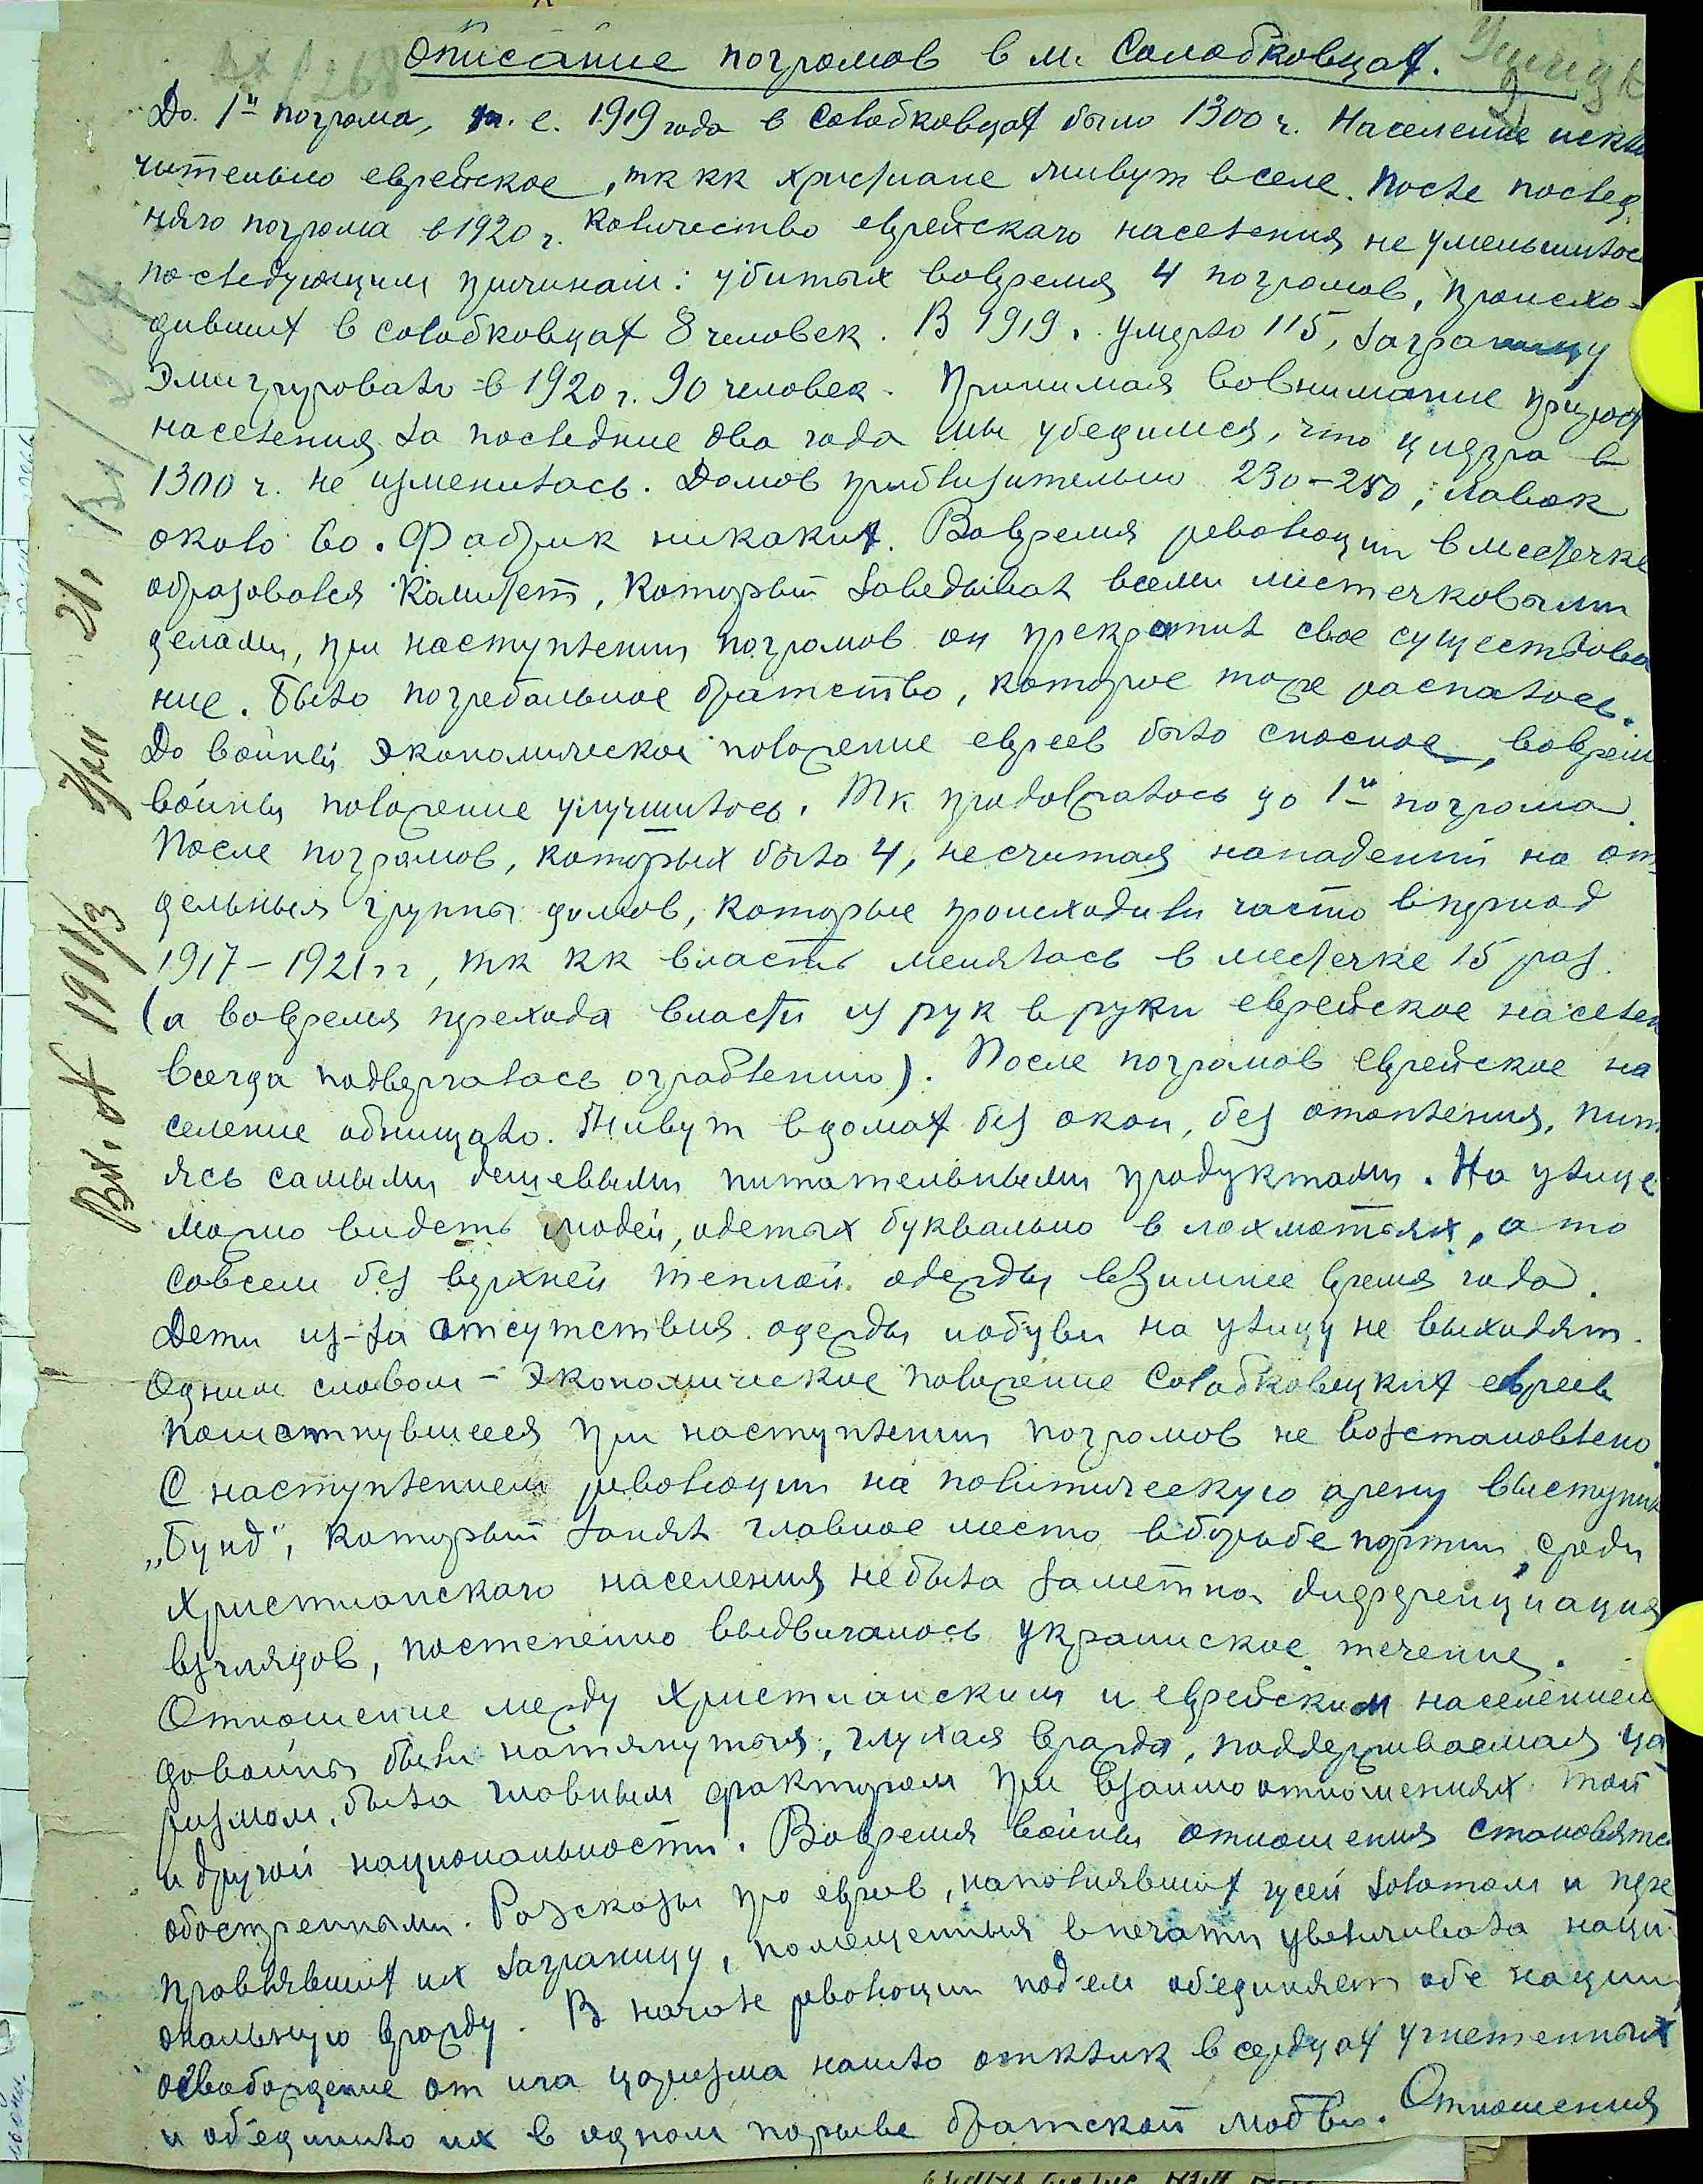 Описание погромов в м. Солобковцах.
До 1го погрома, т. е. 1919 года в Солобковцах было 1300 ч. Население исклю
чительно еврейское, тк кк христиане живут в селе. После послед
няго погрома в 1920 г. количество еврейскаго населения не уменьшилось
по следующим причинам: убитых вовремя 4 погромов, происхо-
дивших в Солобковцах 8 человек. В 1919 г. умерло 115, заграницу
эмигрировало в 1920 г. 90 человек. Принимая вовнимание прирост
населения за последние два года мы убедимся, что цифра в
1300 ч. не изменилась. Домов приблизительно 230-250, лавок
около 60. Фабрик никаких. Вовремя революции в местечке
образовался Комитет, который заведывал всеми местечковыми
делами, при наступлении погромов он прекратил свое существова
ние. Было погребальное братство, которое тоже распалось.
До войны экономическое положение евреев было сносное, вовремя
войны положение улучшилось. Тк продолжалось до 1го погрома.
После погромов, которых было 4, несчитая нападений на от
дельныя группы домов, которые происходили часто в период
1917-1921 гг, тк кк власть менялась в местечке 15 раз.
(а вовремя перехода власти из рук в руки еврейское населен
всегда подвергалось ограблению). После погромов еврейское на
селение обнищало. Живут в домах без окон, без отопления, пит
аясь самыми дешевыми питательными продуктами. На улице
можно видеть людей, одетых буквально в лохмотьях, а то
совсем без верхней теплой одежды в зимнее время года.
Дети из-за отсутствия одежды и обуви на улицу не выходят.
Одним словом - экономическое положение Солобковецких евреев
пошатнувшееся при наступлении погромов не возстановлено.
С наступлением революции на политическую арену выступил
„Бунд", который занял главное место в борьбе партии, среди
христианскаго населения не была заметна диференциация
взглядов, постепенно выдвигалось украинское течение.
Отношение между христианским и еврейским населением
до войны были натянутыя, глухая вражда, поддерживаемая ца
ризмом, была главным фактором при взаимоотношениях той
и другой национальности. Вовремя войны отношения становятся
обостренными. Разсказы про евреев, наполнявших гусей золотом и пере
правлявших их заграницу, помещенныя в печати увеличивала наци
ональную вражду. В начале революции подъем объединяет обе нации,
освобождение от ига царизма нашло отклик в сердцах угнетенных
и объединило их в одном порыве братской любви. Отношения
Вх. № 1981/3
21.